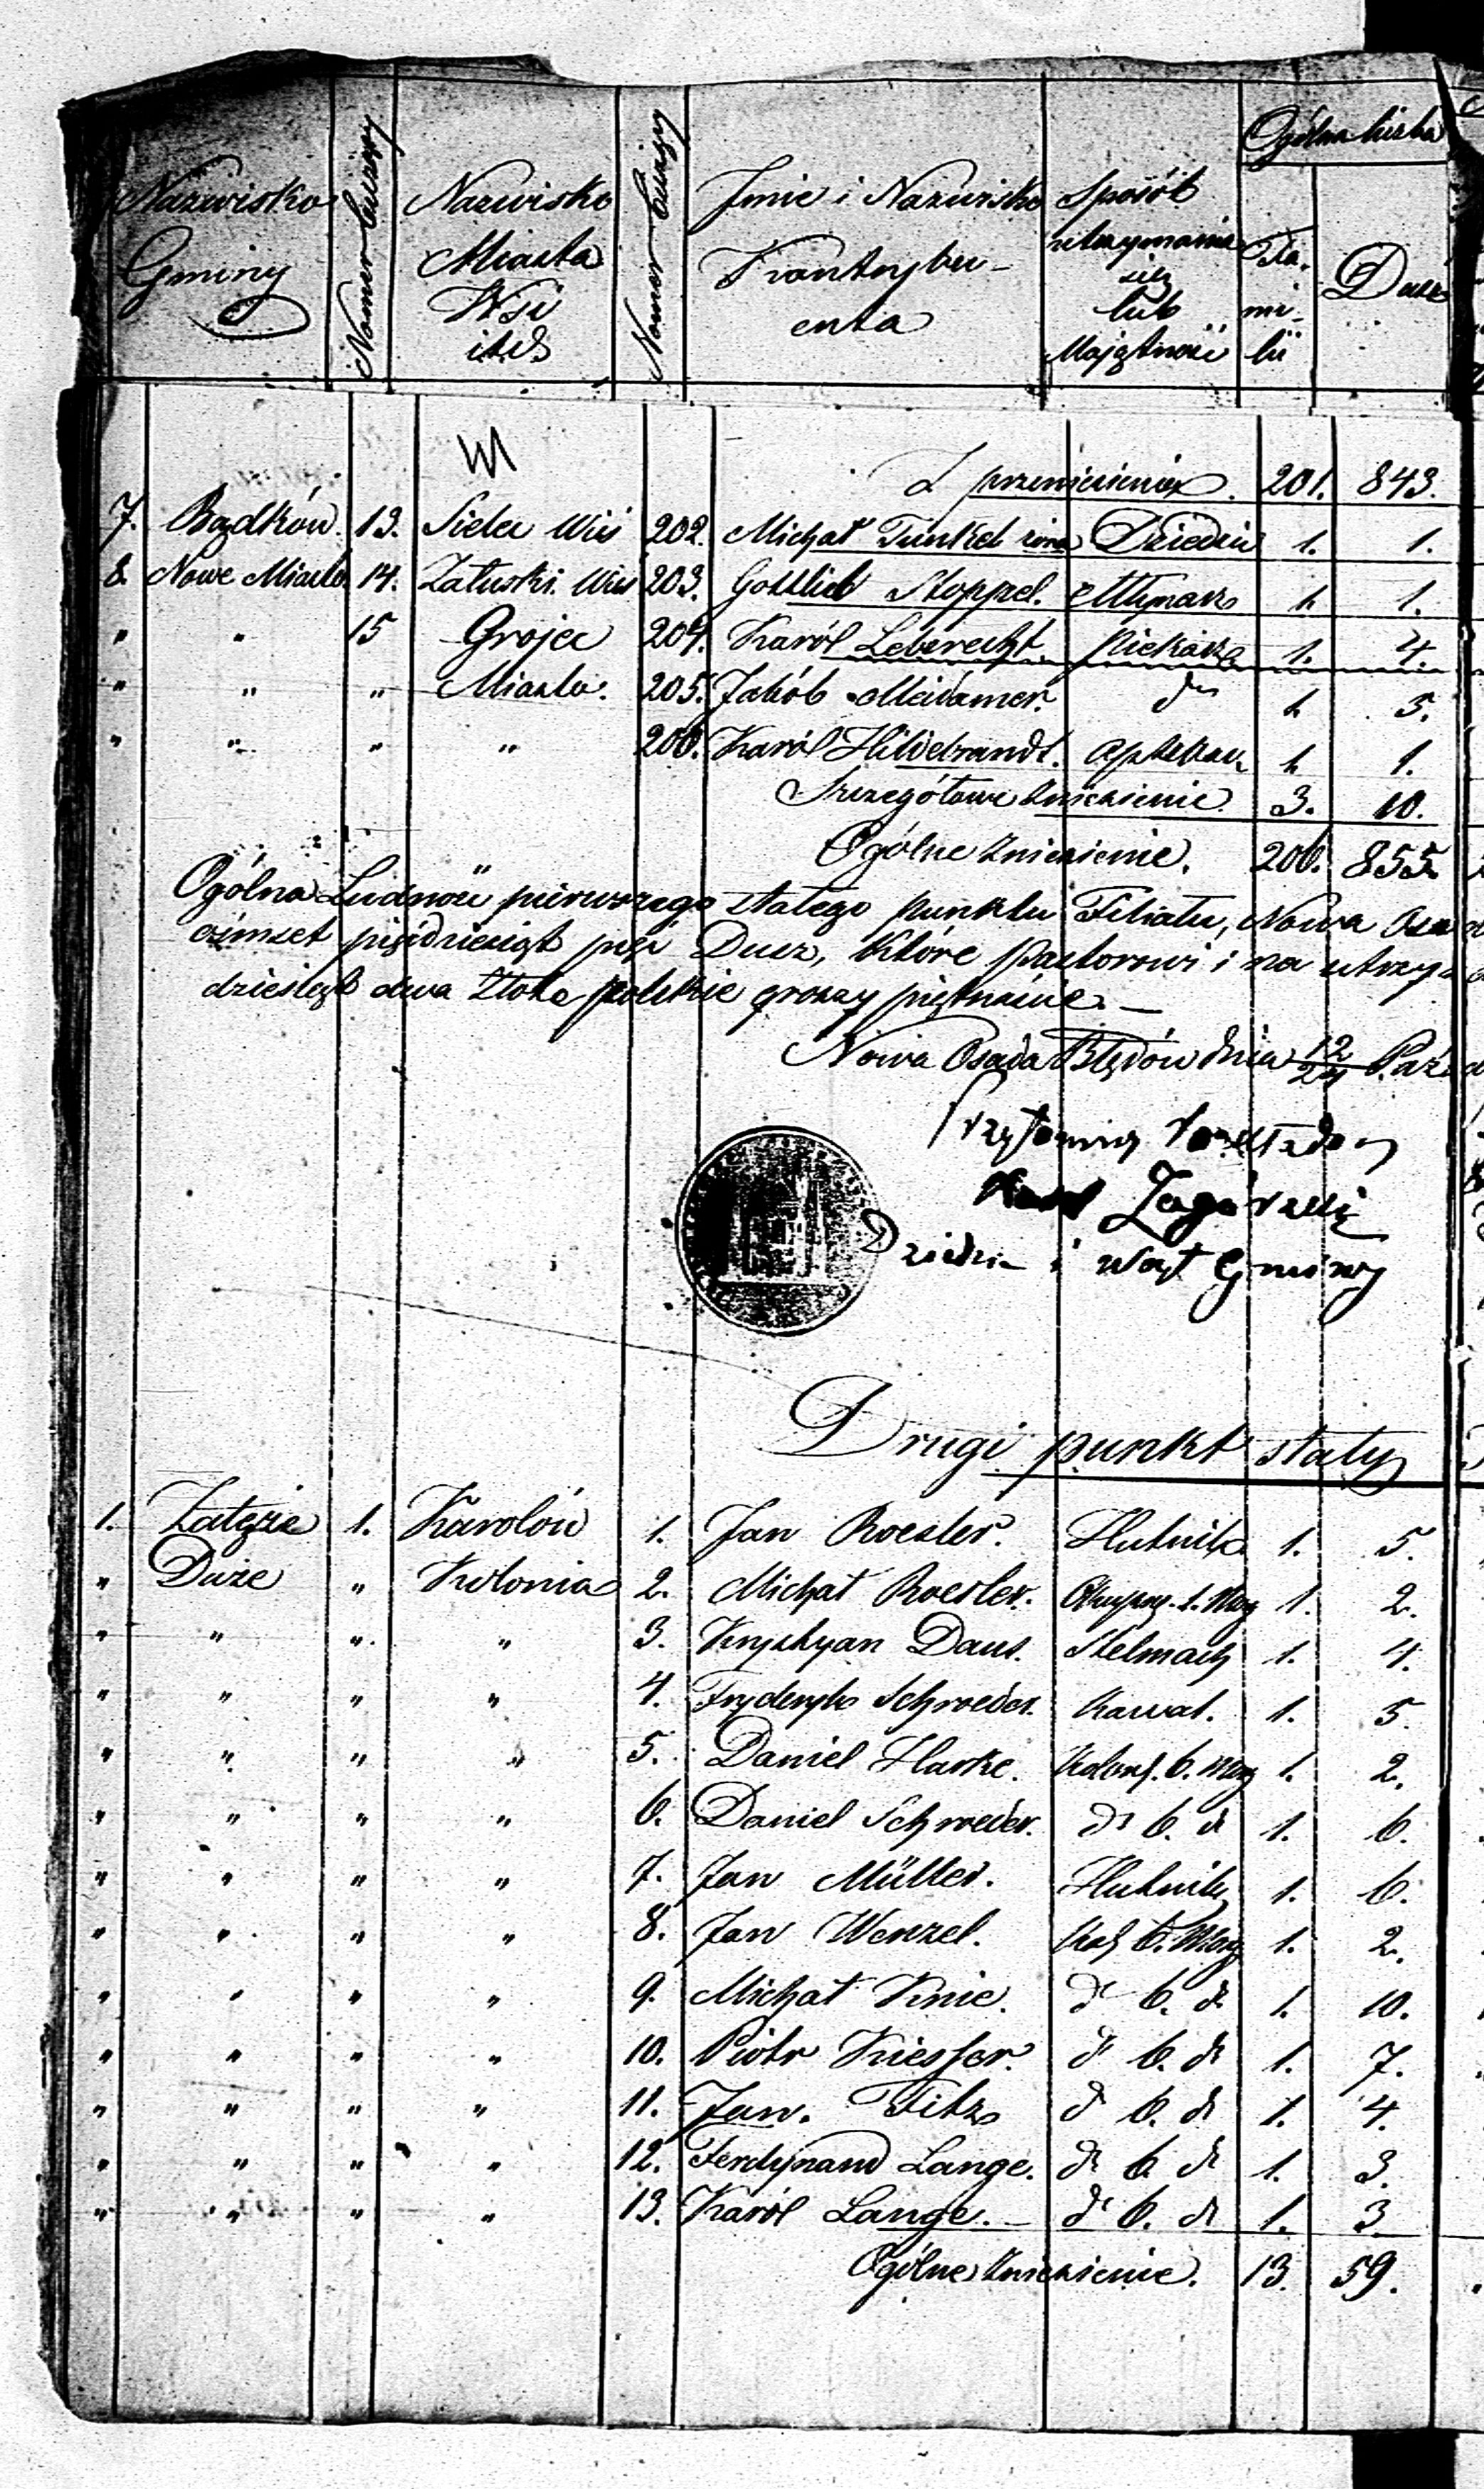 Nazwisko Gminy
Nomer bieżący
Nazwisko Miasta Wsi itd
Nomer bieżący
Imie i Nazwisko Kontrybu-enta
Sposób utrzymania się lub Majętność
Ogólna liczba
Fa-mi-lii
Dusz
Z przeniesienia. 201. 843.
7. Bądków. 13. Sielec Wieś 202. Michał Tunkel Dziedzic 1. 1.
8. Nowe Miasto 14. Załuski Wieś 203. Gottlieb Stoppel. Młynarz 1. 1.
" " 15 Grojec 204. Karól Leberecht. Piekarz 1. 4.
" " " Miasto. 205. Jakób Meidamer. do 1. 5.
" " " " 206. Karól Hildebrandt. Aptekarz 1. 1.
Szczegółowe zniesienie. 3. 10.
Ogólne zniesienie. 206. 855.
Ogólna Ludność pierwszego stałego punktu Filiału, Nowa Osa
ośmset pięćdziesiąt pięć Dusz, które Pastorowi i na utrzy
dziesiąt dwa Złote polskie groszy piętnaście. —
Nowa Osada Błędów dnia 12/24 Paź
Zagórski
Dziedzic i Wójt Gminy
Drugi punkt stały
1. Załęże 1. Karolów 1. Jan Roesler. Hutnik 1. 5.
" Duże " Kolonia 2. Michał Roesler. Okupny. 1. Mor 1. 2.
" " " " 3. Krystyan Daus. Stelmach 1. 4.
" " " " 4. Fryderyk Schroeder. Kowal. 1. 5.
" " " " 5. Daniel Harke. Kolon. 6. Mor 1. 2.
" " " " 6. Daniel Schroeder. do 6. do 1. 6.
" " " " 7. Jan Müller. Hutnik 1. 6.
" " " " 8. Jan Wenzel. Kol 6. Mor 1. 2.
" " " " 9. Michał Knie. do 6. do 1. 10.
" " " " 10. Piotr Kiesser. do 6. do 1. 7.
" " " " 11. Jan. Fitz do 6. do 1. 4.
" " " " 12. Ferdynand Lange. do 6. do 1. 3.
" " " " 13. Karól Lange. — do 6. do 1. 3.
Ogólne zniesienie. 13. 59.